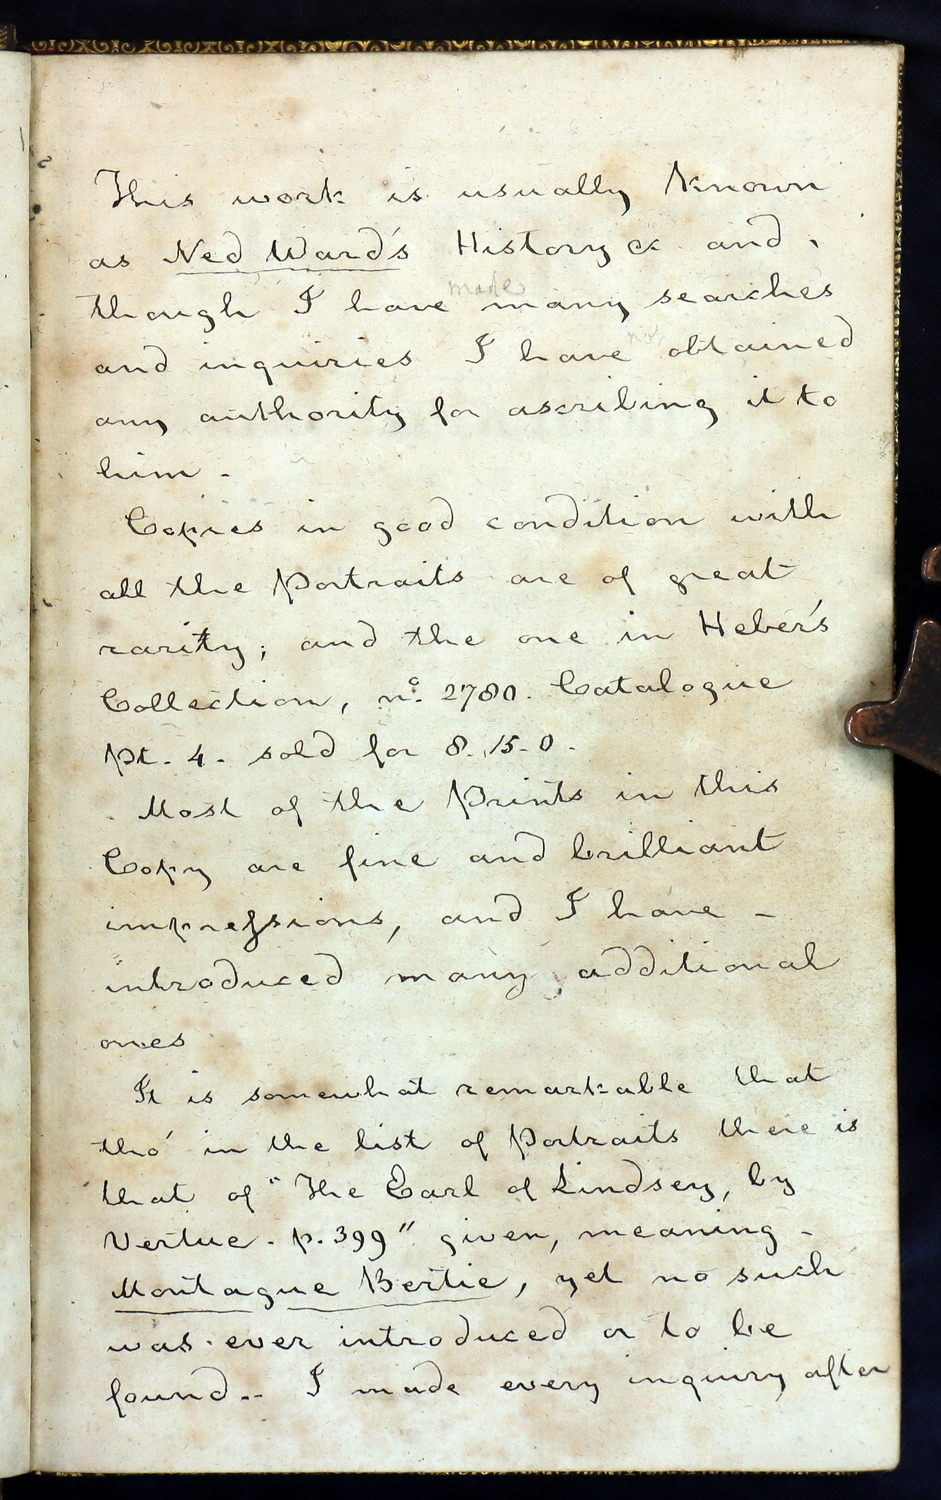 This work is usually known
as Ned Ward's History &c and
made
though I have many searches
not
and inquiries I have obtained
any authority for ascribing it to
him -
Copies in good condition with
all the Portraits are of great
rarity; and the one in Heber's
Collection, no. 2780. Catalogue
Pt. 4. sold for 8. 15. 0.
Most of the Prints in this
Copy are fine and brilliant
impressions, and I have -
introduced many additional
ones
It is somewhat remarkable that
tho' in the list of Portraits there is
that of "The Earl of Lindsey, by
Vertue. p. 399" given, meaning -
Montague Bertie, yet no such
was ever introduced or to be
found.- I made every inquiry after